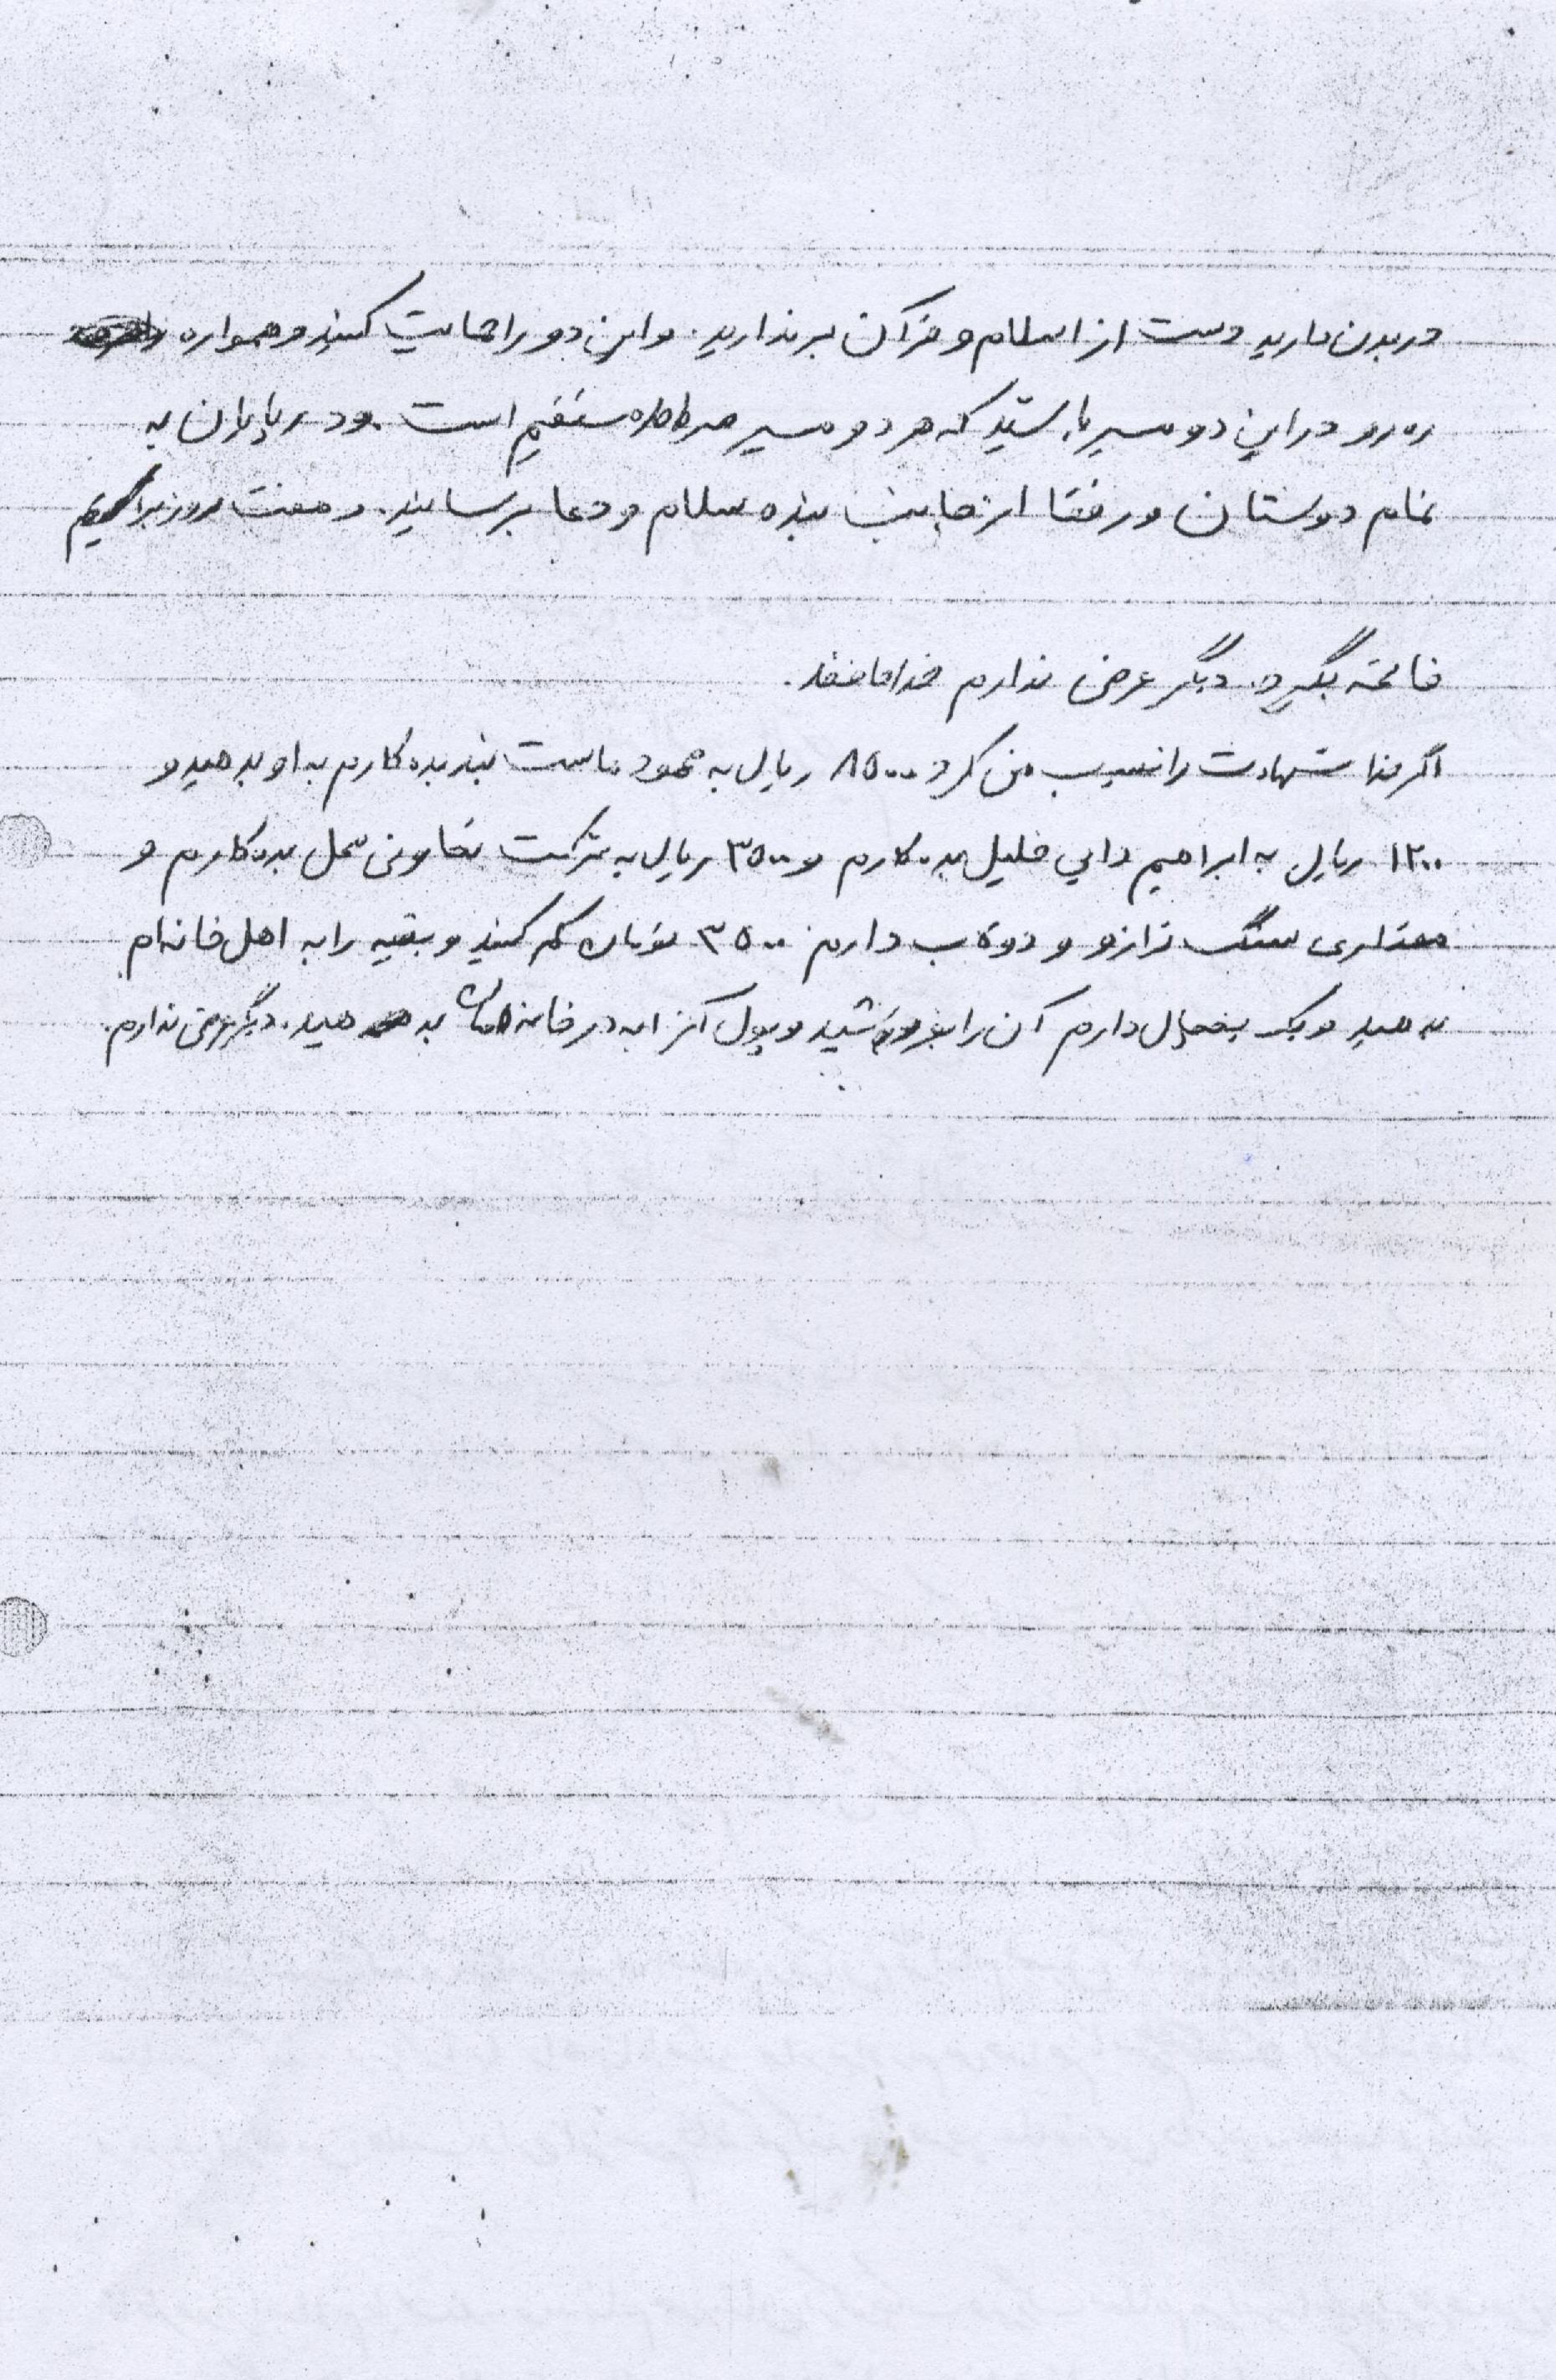 در بدن دارید دست از اسلام و قرآن برندارید. و این دو را حمایت کنید و همواره
ره رو در این دو مسیر باستید که هر دو مسیر صراط مستقیم است. و در پایان به
تمام دوستان و رفقا از جانب بنده سلام و دعا برسانید. و هفت روز برایم
فاتحه بگیرد. دیگر عرضی ندارم خداحافظ.
اگر خدا شهادت را نسیب من کرد ۸۵۰۰ ریال به محمود ماست بند بده کارم به او بدهید و
۱۲۰۰ ریال به ابراهیم دایی خلیل بده کارم و ۳۵۰۰ ریال به شرکت تعاونی محل بده کارم و
مقداری سنگ ترازو و دوکاب دارم ۳۵۰۰ تومان کم کنید و بقیه را به اهل خانه ام
بدهید و یک یخچال دارم آن را بفروشید و پول آنرا به در خانه مان بدهید. دیگر عرضی ندارم.